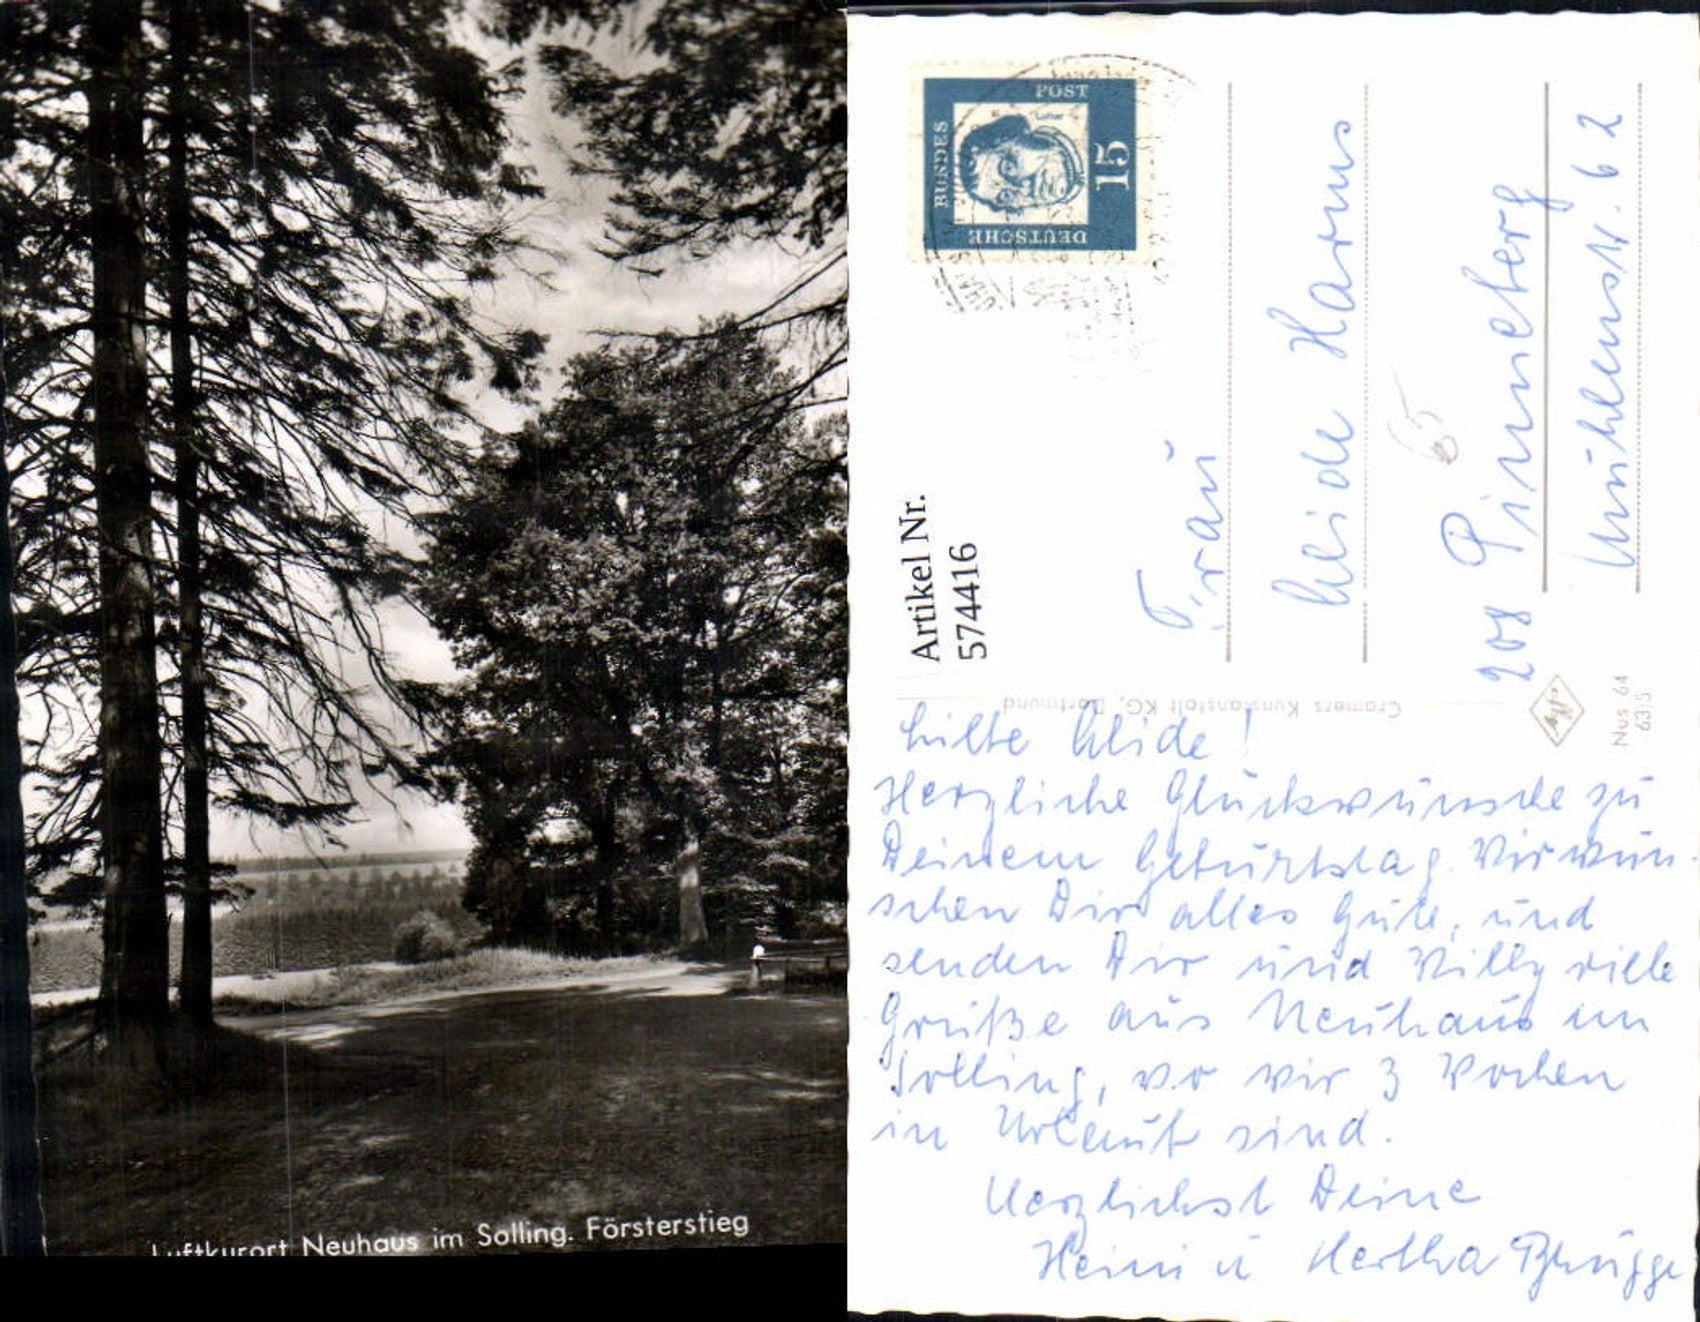 Luftkurort Neuhaus im Solling. Försterstieg
DEUTSCHE
BUNDES
POST
15
Luther
Artikel Nr.
574416
Frau
Heide Harms
208 Pinneberg
Mühlenstr. 62
65
Cramers Kunstanstalt KG, Dortmund
Agfa
Nus 64
63|5
Liebe Heide!
Herzliche Glückwünsche zu
Deinem Geburtstag. Wir wün-
schen Dir alles Gute, und
senden Dir und Willy viele
Grüße aus Neuhaus im
Solling, wo wir 3 Wochen
in Urlaub sind.
Herzlichst Deine
Heini u Hertha